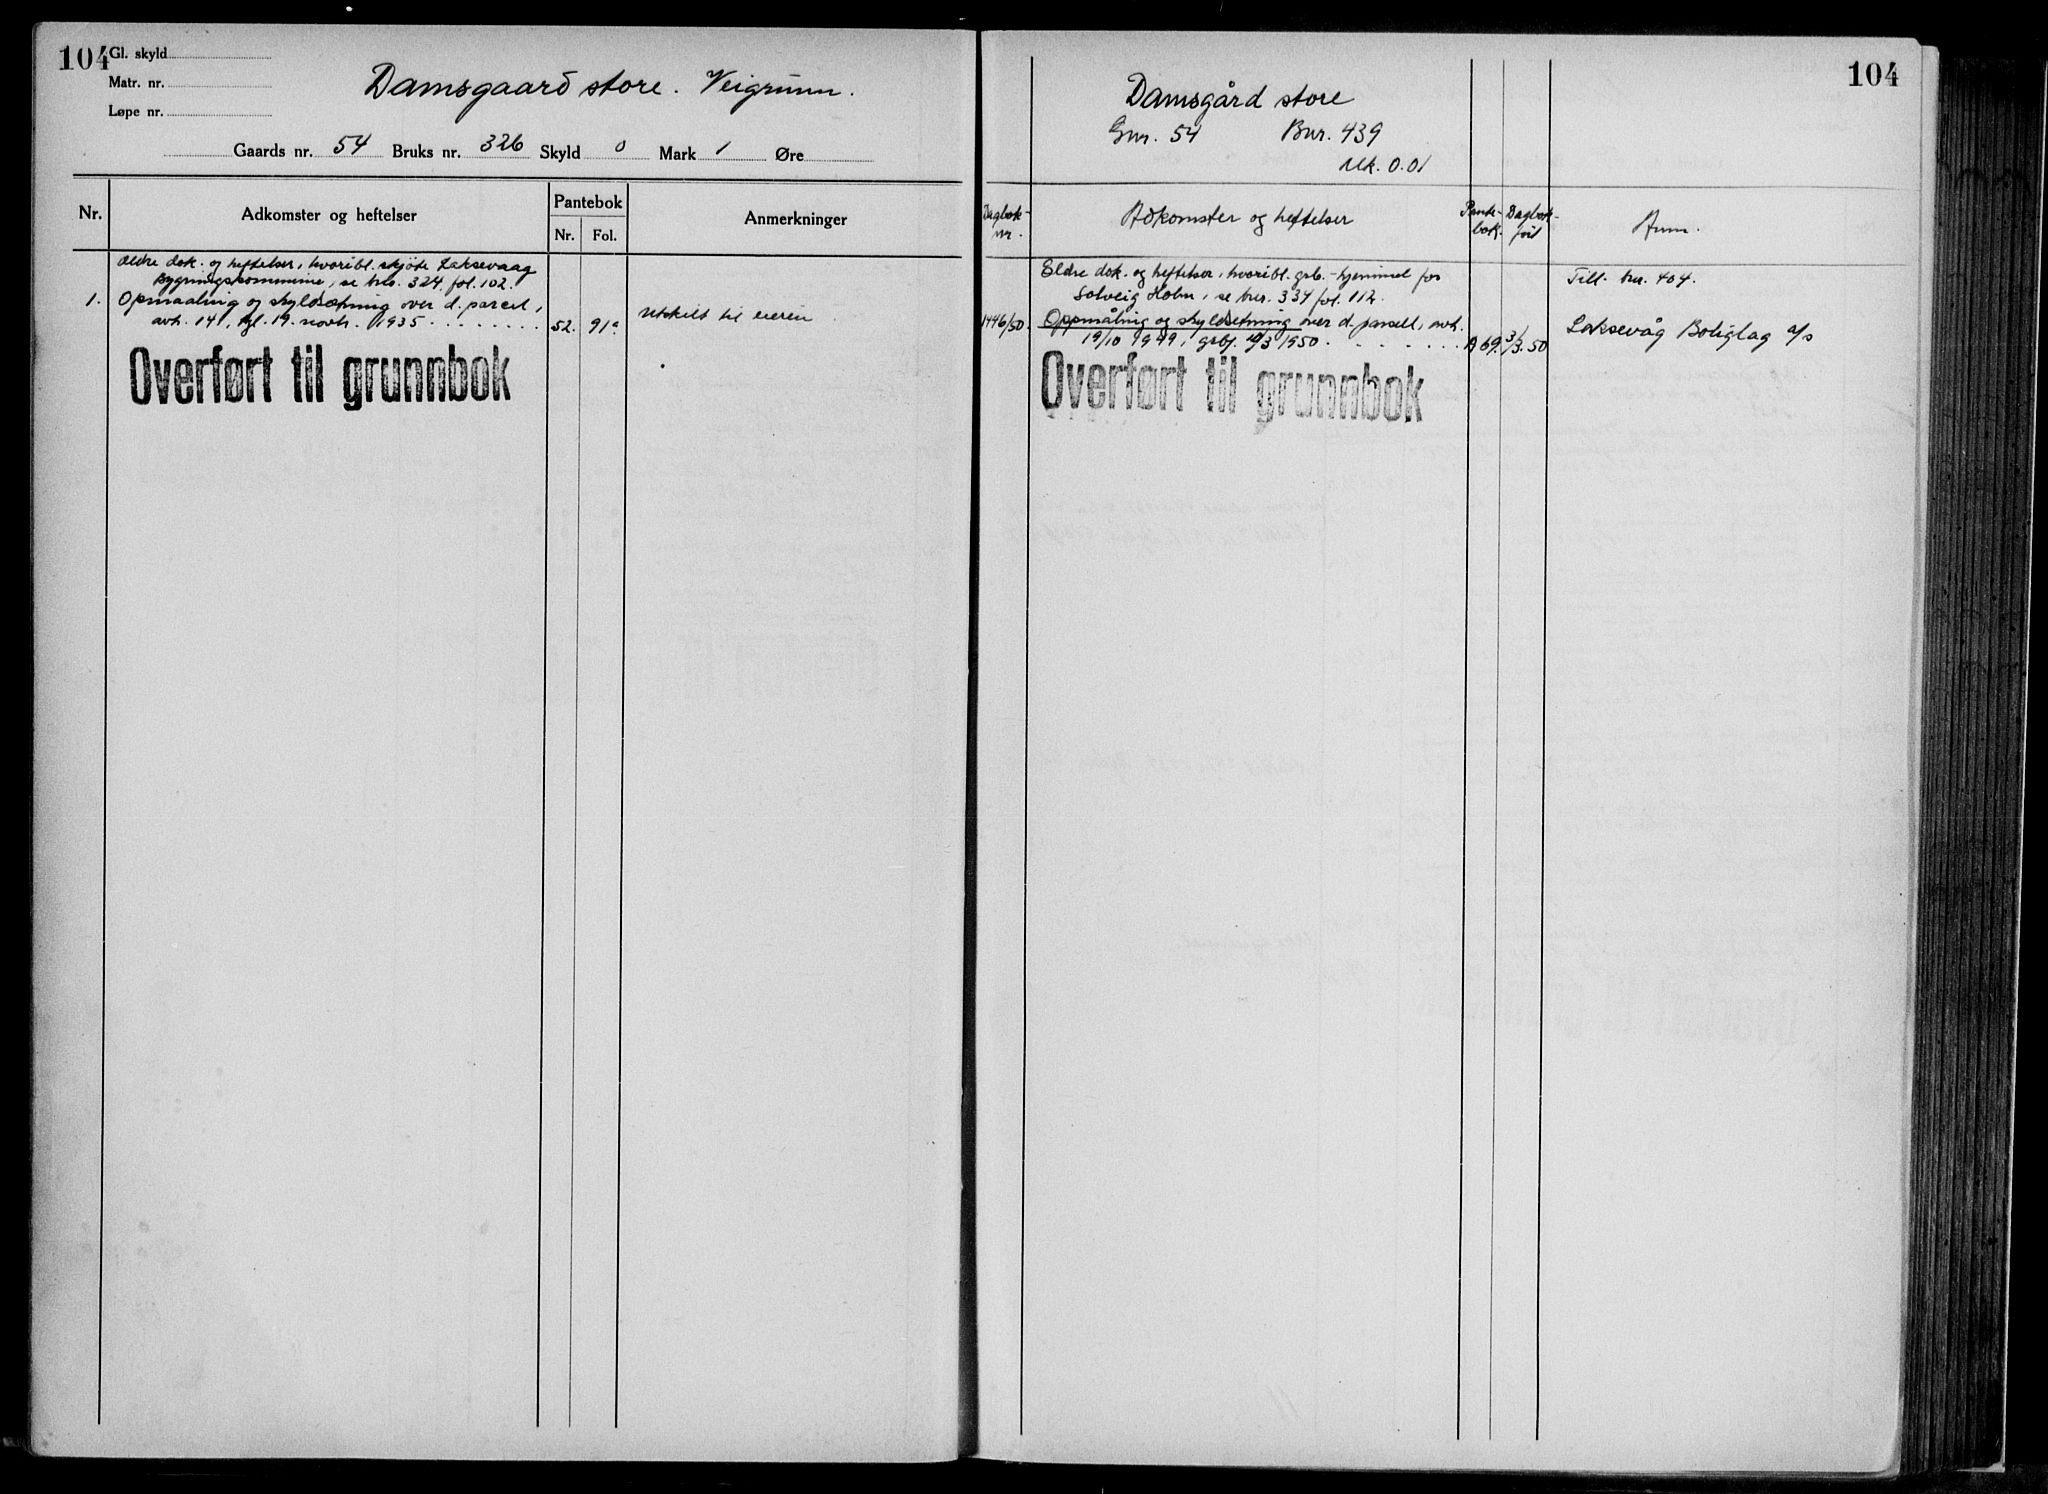 104
Gl. skyld
Matr. nr.
Løpe nr.
Damsgaard store. Veigrunn.
Gaards nr. 54 Bruks nr. 326 Skyld 0 Mark 1 Øre
Nr.
Adkomster og heftelser
Pantebok
Nr. Fol.
Anmerkninger
Ældre dok. og heftelser, hvoribl. skjøte Laksevaag
Bygningskommune, se brs. 324. fol. 102.
1. Opmaaling og skyldsætning over d. parcel,
avh. 14, tgl. 19. novbr. 1935 52. 91a
Utskilt til veien
Overført til grunnbok
104
Damsgård store
Gnr. 54 Bnr. 439
Mk. 0.01
Dagbok-
nr.
Adkomster og heftelser
Pante-
bok.
Dagbok-
föil
Anm.
Eldre dok. og heftelser, hvoribl. grb.-hjemmel for
Solveig Holm, se bnr. 334 fol. 112.
Till. bnr. 404.
1446/50. Oppmåling og skyldsetning over d. parsell, avh.
19/10 1949, grbf. 3 1950. A 69. 3/3.50
Laksevåg Boliglag a/s
Overført til grunnbok